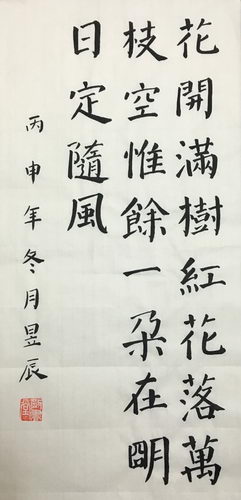 花開滿樹紅花落萬
枝空惟餘一朶在明
日定隨風
丙申年冬月昱辰